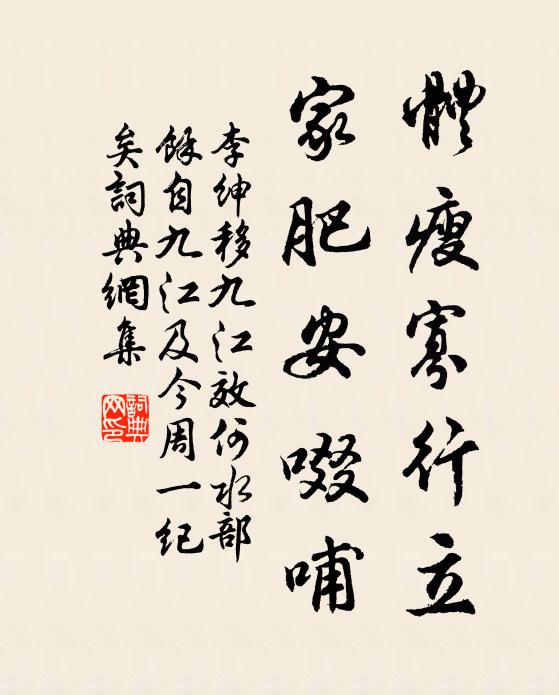 體瘦寡行立
家肥安啜哺
李紳移九江效何水部
餘自九江及今周一紀
矣詞典網集
詞典
网印